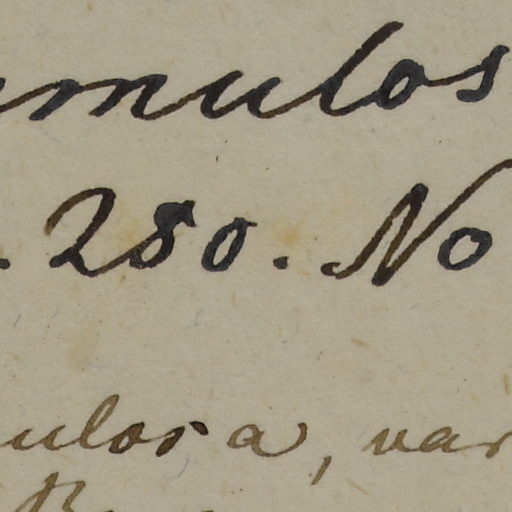 mulos
. 280. No
ulosa, var